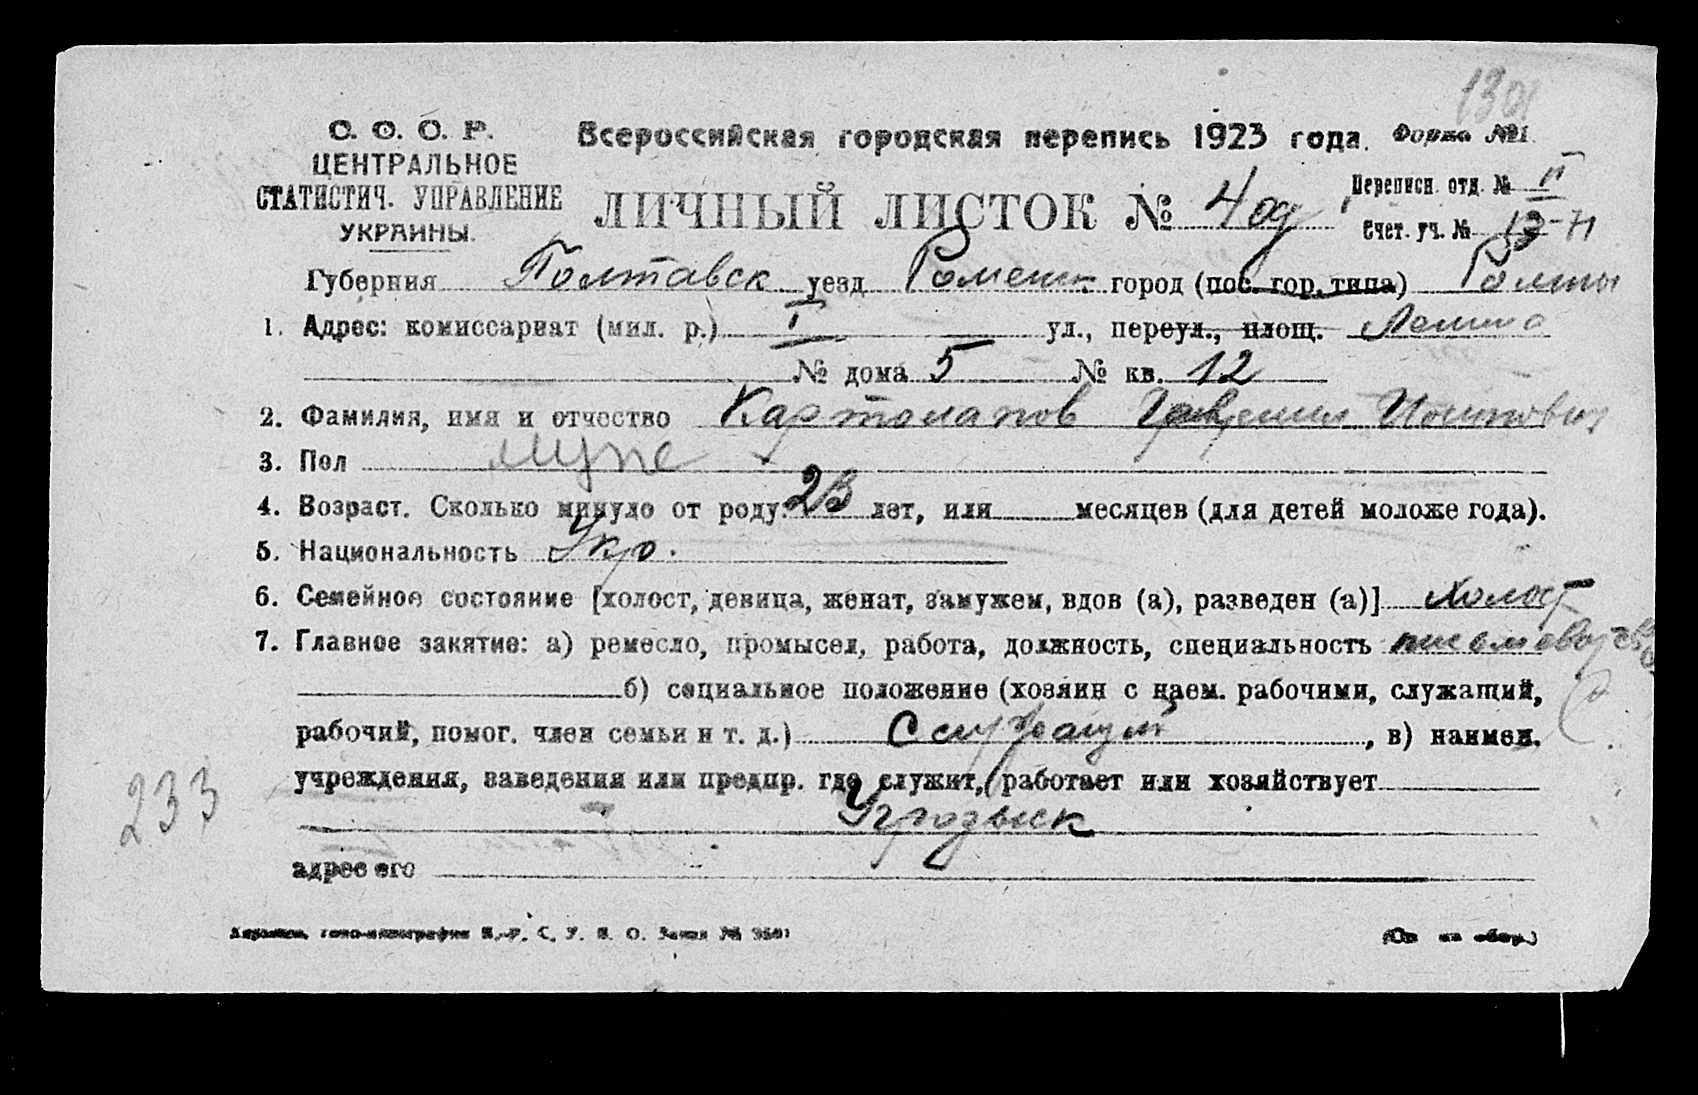 1301
С. С. С. Р.
ЦЕНТРАЛЬНОЕ
СТАТИСТИЧ. УПРАВЛЕНИЕ
УКРАИНЫ.
Всероссийская городская перепись 1923 года. Форма №1.
ЛИЧНЫЙ ЛИСТОК № 4
Переписн. отд. № II
Счет. уч. № 13-
Губерния Полтавск уезд Роменск город (пос. гор. типа) Ромны
1. Адрес: комиссариат (мил. р.) I ул., переул., площ. Ленина
№ дома 5 № кв. 12
2. Фамилия, имя и отчество Картолапов
3. Пол муж
4. Возраст. Сколько минуло от роду 23 лет, или месяцев (для детей моложе года).
5. Национальность Укр.
6. Семейное состояние [холост, девица, женат, замужем, вдов (а), разведен (а)] Холост
7. Главное занятие: а) ремесло, промысел, работа, должность, специальность письмовод
б) социальное положение (хозяин с наем. рабочими, служащий,
рабочий, помог. член семьи и т. д.) Служащий, в) наимен.
учреждения, заведения или предпр. где служит, работает или хозяйствует
адрес его
233
(См на обор.)